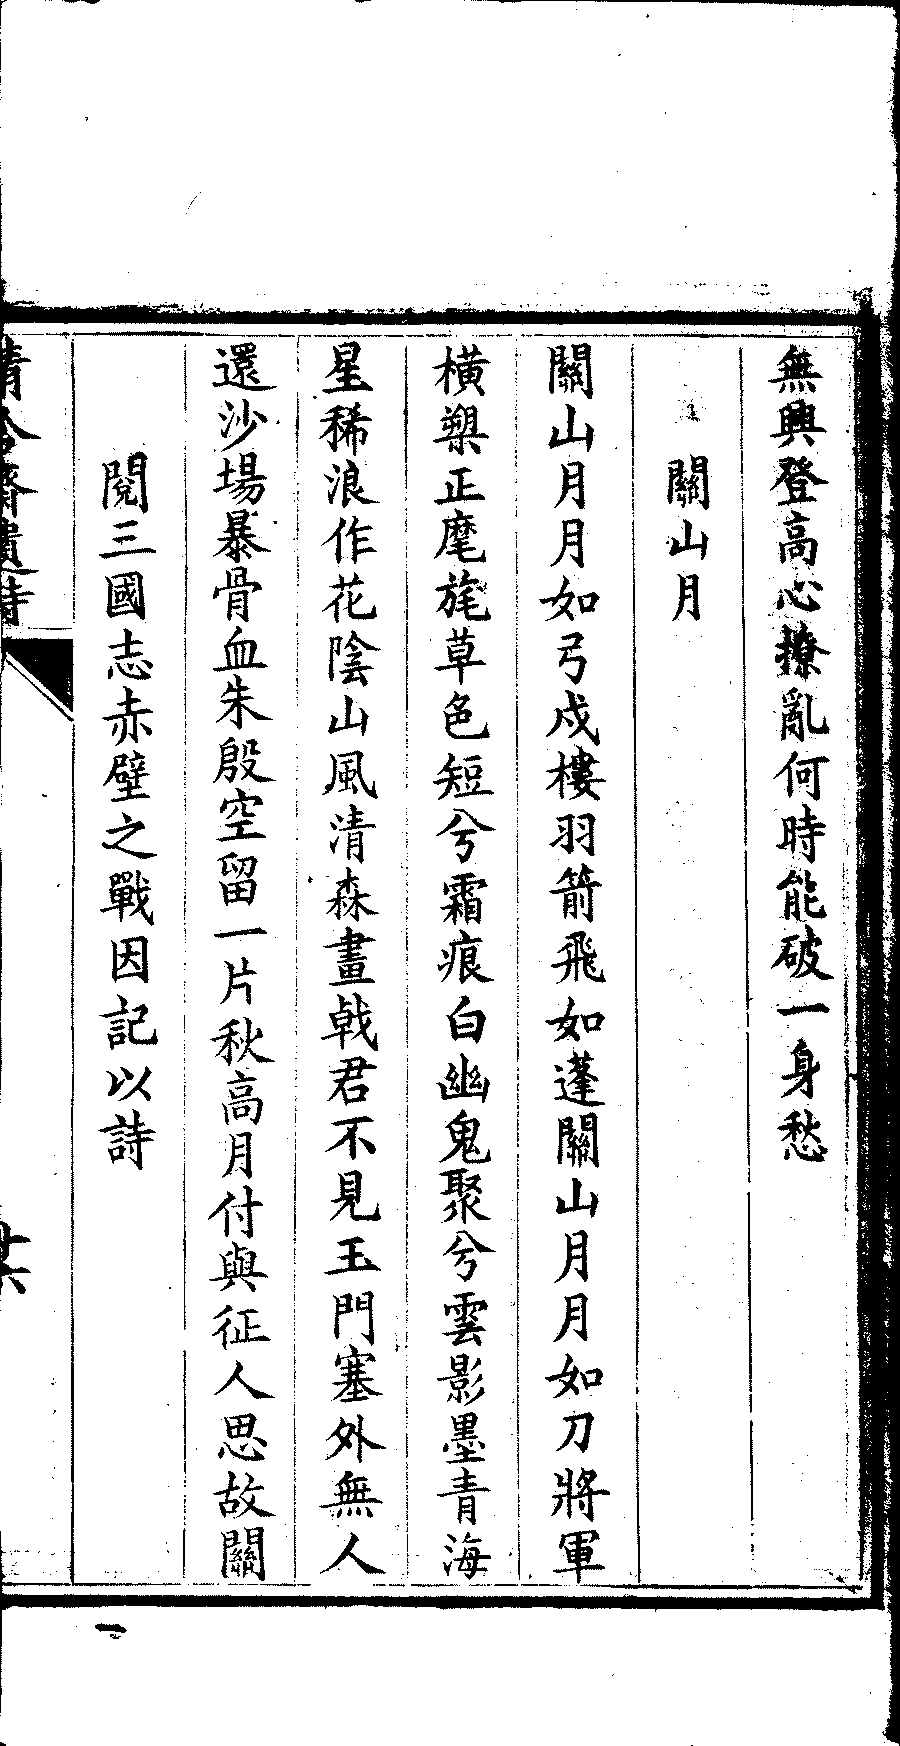 無興登高心撩亂何時能破一身愁
關山月
關山月月如弓戍樓羽箭飛如蓬關山月月如刀將軍
橫槊正麾旄草色短兮霜痕白幽鬼聚兮雲影墨青海
星稀浪作花陰山風清森畫戟君不見玉門塞外無人
還沙場暴骨血朱殷空留一片秋高月付與征人思故關
閱三國志赤壁之戰因記以詩